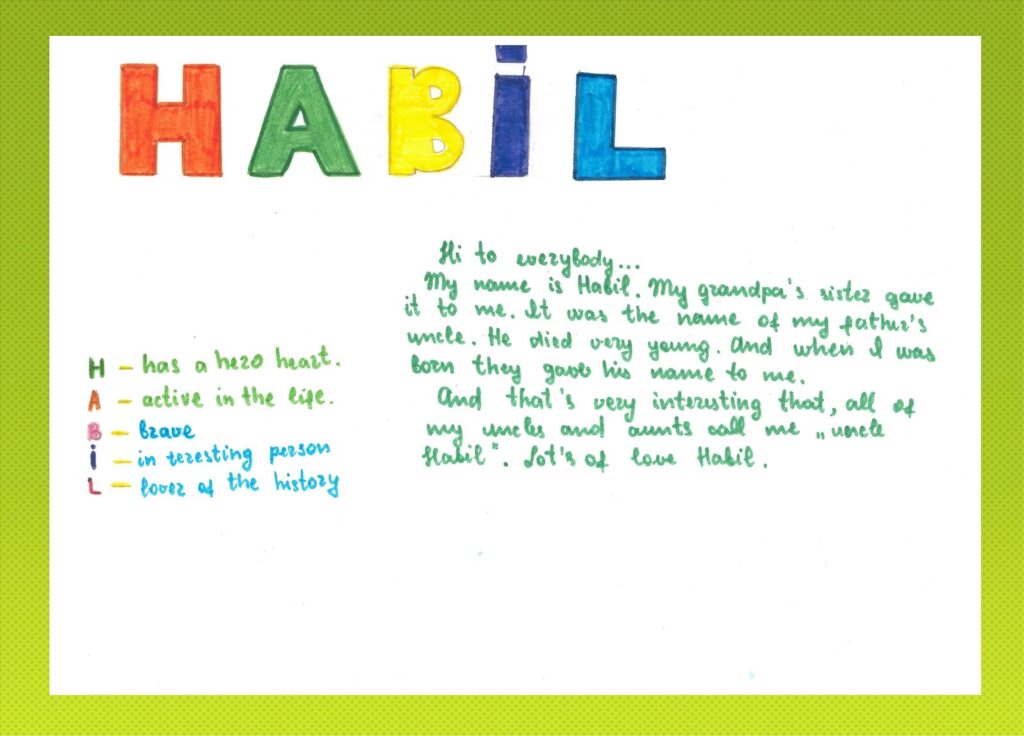 HABİL
H – has a hero heart.
A – active in the life.
B – brave
İ – in teresting person
L – lover of the history
Hi to everybody...
My name is Habil. My grandpa's sister gave
it to me. It was the name of my father's
uncle. He died very young. And when I was
born they gave his name to me.
And that's very interesting that, all of
my uncles and aunts call me „uncle
Habil". Lot's of love Habil.